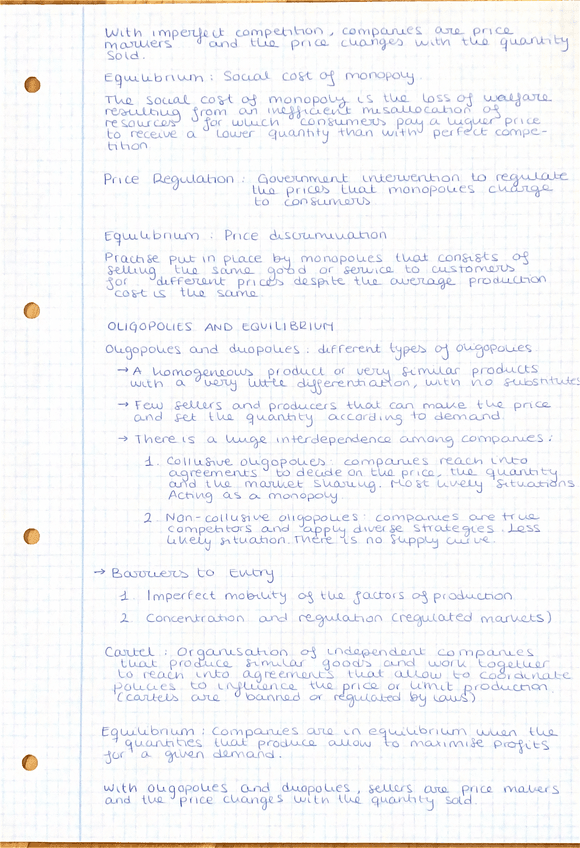 With imperfect competition, companies are price
markers and the price changes with the quantity
sold.
Equilibrium : Social cost of monopoly.
The social cost of monopoly is the loss of welfare
resulting from an inefficient misallocation of
resources for which consumers pay a higher price
to receive a lower quantity than with perfect compe-
tition
Price Regulation : Government intervention to regulate
the prices that monopolies charge
to consumers.
Equilibrium : Price discrimination
Practise put in place by monopolies that consists of
selling the same good or service to customers
for different prices despite the average production
cost is the same.
OLIGOPOLIES AND EQUILIBRIUM
Oligopolies and duopolies : different types of oligopolies.
→ A homogeneous product or very similar products
with a very little differentiation, with no substitutes
→ Few sellers and producers that can make the price
and set the quantity according to demand.
→ There is a huge interdependence among companies :
1. Collusive oligopolies : companies reach into
agreements to decide on the price, the quantity
and the market sharing. Most likely situations.
Acting as a monopoly.
2. Non-collusive oligopolies : companies are true
competitors and apply diverse strategies. Less
likely situation. There is no supply curve.
→ Barriers to Entry
1. Imperfect mobility of the factors of production
2. Concentration and regulation (regulated markets)
Cartel : Organisation of independent companies
that produce similar goods and work together
to reach into agreements that allow to coordinate
policies to influence the price or limit production.
(cartels are banned or regulated by laws)
Equilibrium : Companies are in equilibrium when the
quantities that produce allow to maximise profits
for a given demand.
With oligopolies and duopolies, sellers are price makers
and the price changes with the quantity sold.